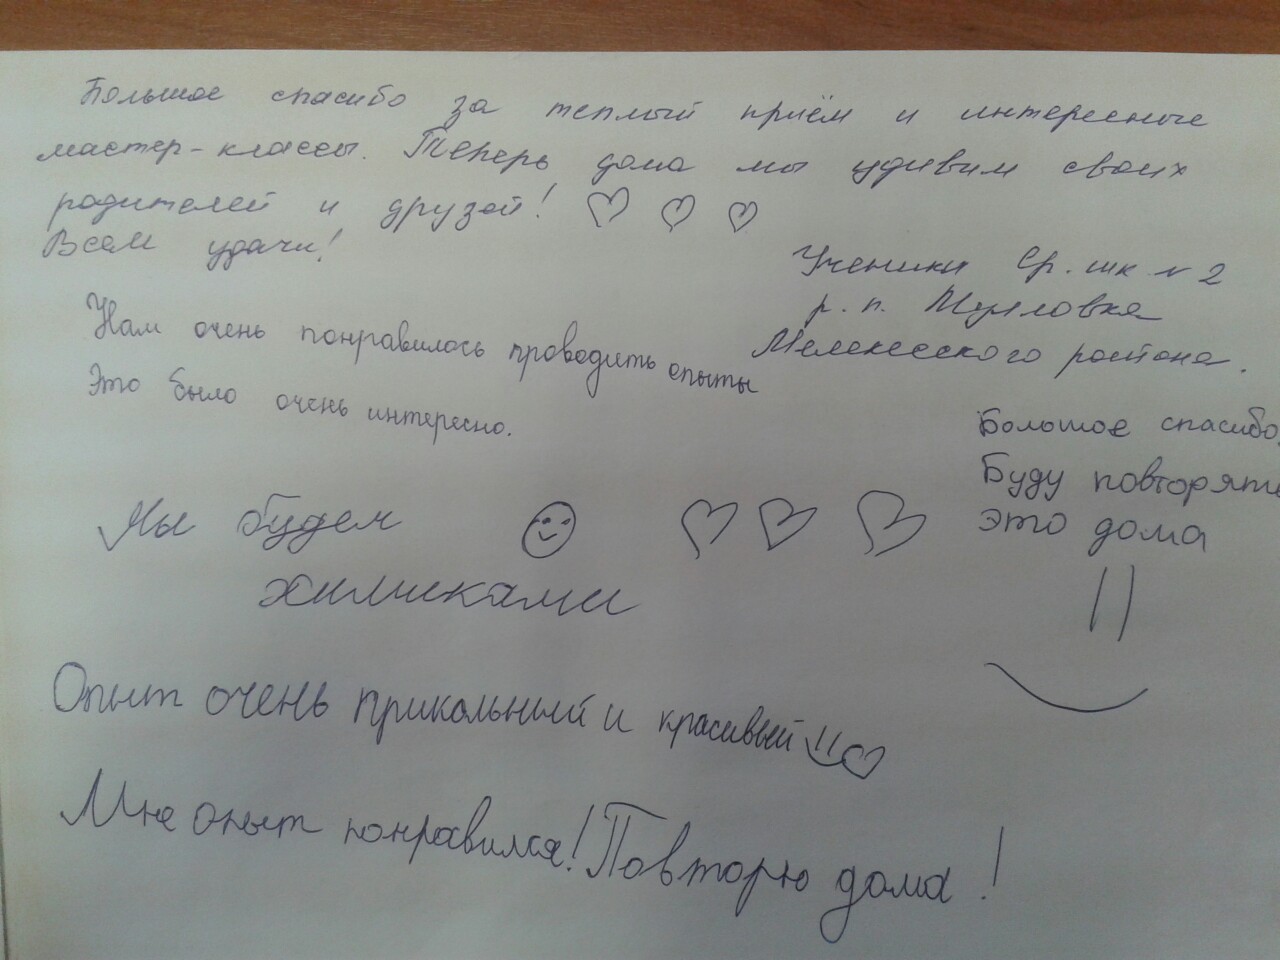 Большое спасибо за теплый приём и интересные
мастер-классы. Теперь дома мы удивим своих
родителей и друзей!
Всем удачи!
Ученики Ср. шк № 2
р. п. Мулловка
Мелекесского района.
Нам очень понравилось проводить опыты
Это было очень интересно.
Большое спасибо.
Буду повторять
это дома
Мы будем
химиками
Опыт очень прикольный и красивый
Мне опыт понравился! Повторю дома!